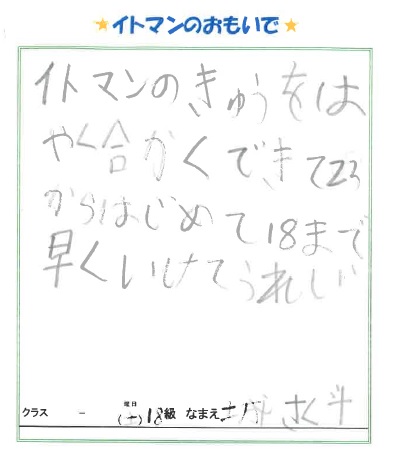 ★イトマンのおもいで★
イトマンのきゅうをは
やく合かくできて23
からはじめて18まで
早くいけてうれしい
クラス － 曜日(土)18級 なまえ さく斗